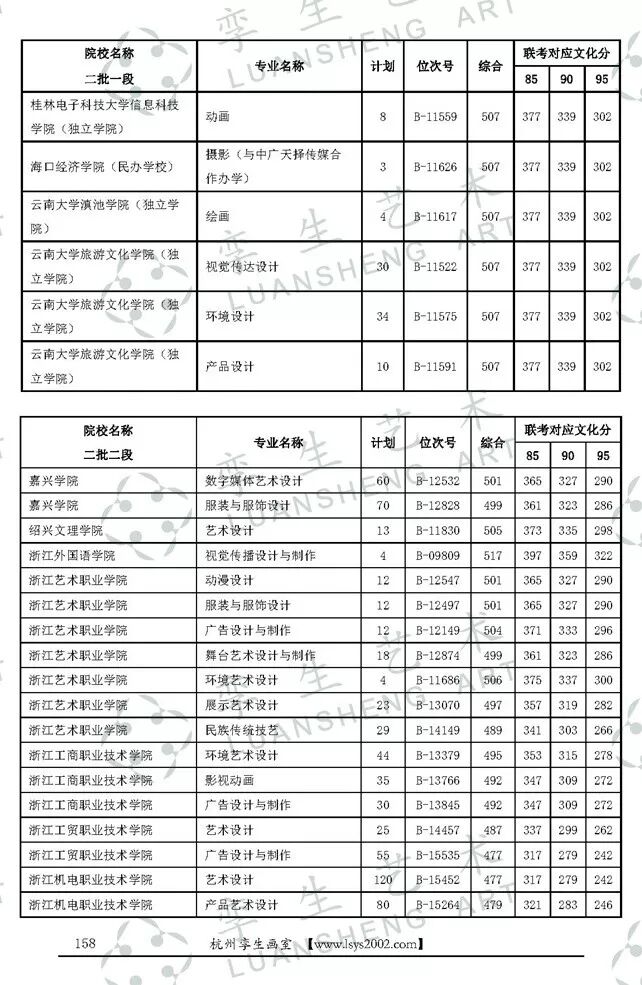 院校名称 专业名称 计划 位次号 综合 联考对应文化分
二批一段 85 90 95
桂林电子科技大学信息科技
学院（独立学院） 动画 8 B-11559 507 377 339 302
海口经济学院（民办学校） 摄影（与中广天择传媒合
作办学） 3 B-11626 507 377 339 302
云南大学滇池学院（独立学
院） 绘画 4 B-11617 507 377 339 302
云南大学旅游文化学院（独
立学院） 视觉传达设计 30 B-11522 507 377 339 302
云南大学旅游文化学院（独
立学院） 环境设计 34 B-11575 507 377 339 302
云南大学旅游文化学院（独
立学院） 产品设计 10 B-11591 507 377 339 302
院校名称 专业名称 计划 位次号 综合 联考对应文化分
二批二段 85 90 95
嘉兴学院 数字媒体艺术设计 60 B-12532 501 365 327 290
嘉兴学院 服装与服饰设计 70 B-12828 499 361 323 286
绍兴文理学院 艺术设计 13 B-11830 505 373 335 298
浙江外国语学院 视觉传播设计与制作 4 B-09809 517 397 359 322
浙江艺术职业学院 动漫设计 12 B-12547 501 365 327 290
浙江艺术职业学院 服装与服饰设计 12 B-12497 501 365 327 290
浙江艺术职业学院 广告设计与制作 12 B-12149 504 371 333 296
浙江艺术职业学院 舞台艺术设计与制作 18 B-12874 499 361 323 286
浙江艺术职业学院 环境艺术设计 4 B-11686 506 375 337 300
浙江艺术职业学院 展示艺术设计 23 B-13070 497 357 319 282
浙江艺术职业学院 民族传统技艺 29 B-14149 489 341 303 266
浙江工商职业技术学院 环境艺术设计 44 B-13379 495 353 315 278
浙江工商职业技术学院 影视动画 35 B-13766 492 347 309 272
浙江工商职业技术学院 广告设计与制作 30 B-13845 492 347 309 272
浙江工贸职业技术学院 艺术设计 25 B-14457 487 337 299 262
浙江工贸职业技术学院 广告设计与制作 55 B-15535 477 317 279 242
浙江机电职业技术学院 艺术设计 120 B-15452 477 317 279 242
浙江机电职业技术学院 产品艺术设计 80 B-15264 479 321 283 246
158 杭州孪生画室 【www.lsys2002.com】
孪生艺术
LUANSHENG ART